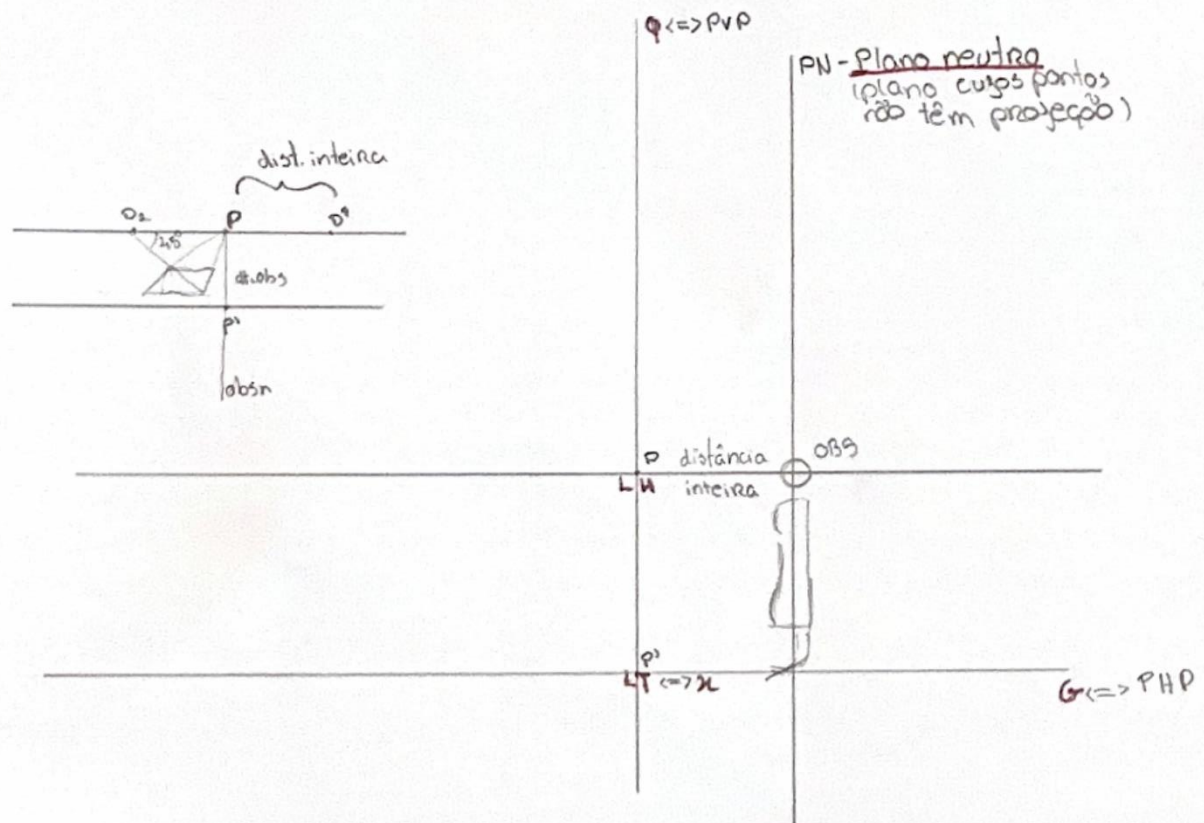 Q <=> PVP
PN - Plano neutro
(plano cujos pontos
não têm projeção)
dist. inteira
D2
P
D1
45º
P'
obsn
P
distância
inteira
OBS
LH
P'
LT <=> x
G <=> PHP